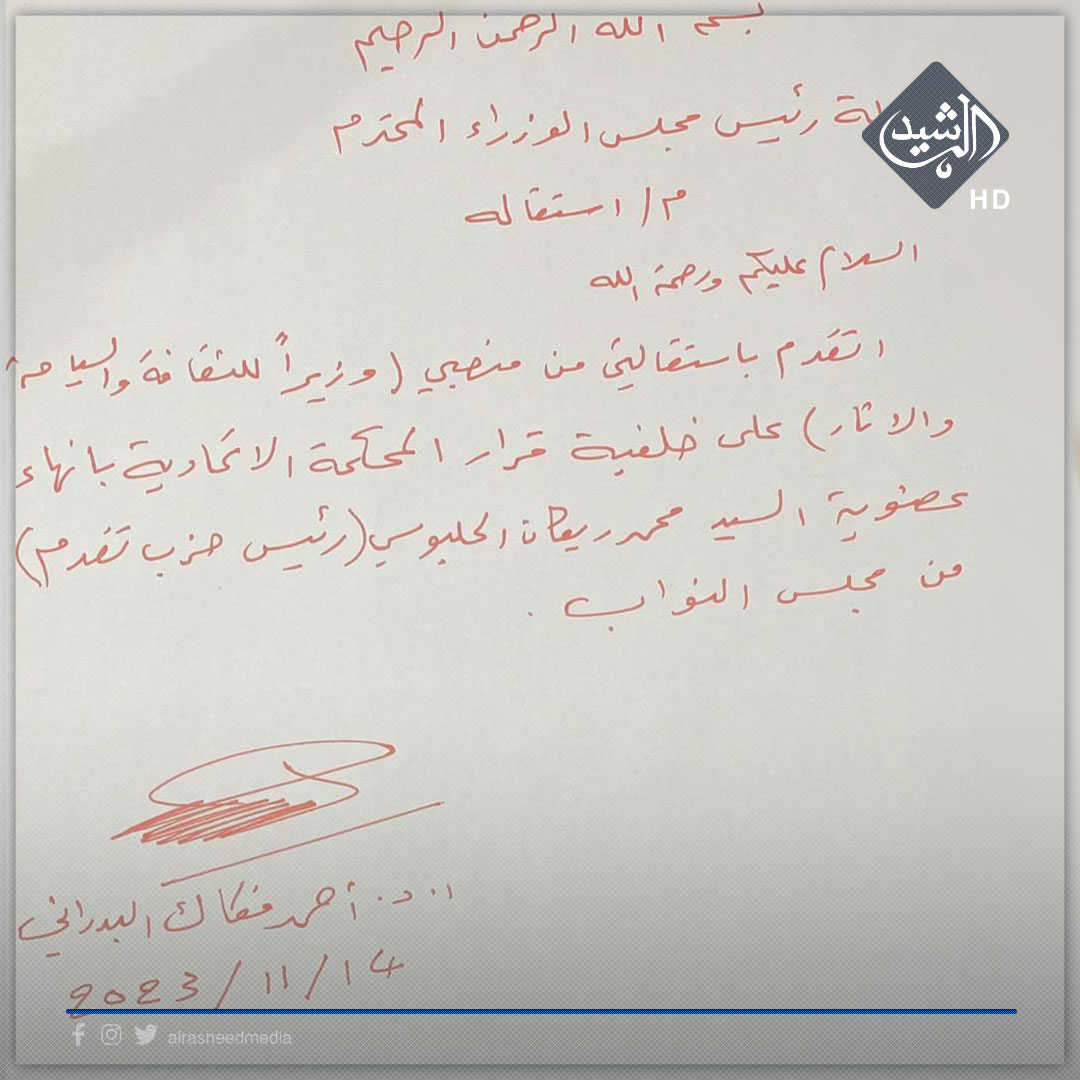 بسم الله الرحمن الرحيم
رئيس مجلس الوزراء المحترم
م/ استقاله
السلام عليكم ورحمة الله
اتقدم باستقالتي من منصبي (وزيراً للثقافة والسياحة
والاثار) على خلفية قرار المحكمة الاتحادية بانهاء
عضوية السيد محمد ريكان الحلبوسي (رئيس حزب تقدم)
من مجلس النواب .
ا. د. أحمد فكاك البدراني
2023/11/14
الرشيد
HD
alrasheedmedia